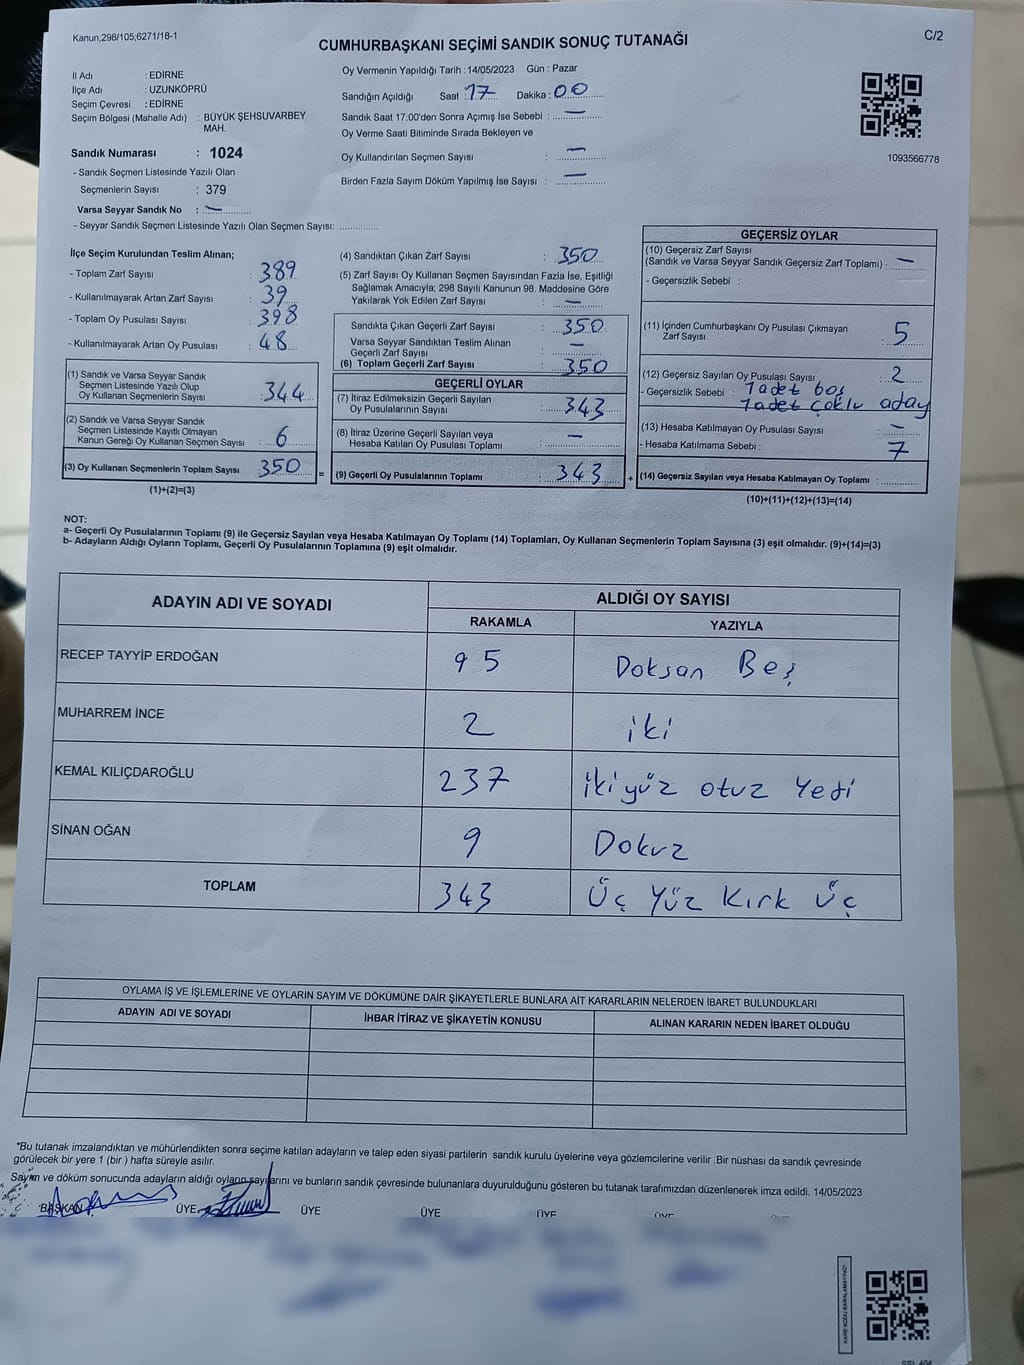 Kanun,298/105;6271/18-1
C/2
CUMHURBAŞKANI SEÇİMİ SANDIK SONUÇ TUTANAĞI
İl Adı : EDİRNE
İlçe Adı : UZUNKÖPRÜ
Seçim Çevresi : EDİRNE
Seçim Bölgesi (Mahalle Adı) : BÜYÜK ŞEHSUVARBEY
MAH.
Sandık Numarası : 1024
- Sandık Seçmen Listesinde Yazılı Olan
Seçmenlerin Sayısı : 379
Varsa Seyyar Sandık No : —
- Seyyar Sandık Seçmen Listesinde Yazılı Olan Seçmen Sayısı: ..............
Oy Vermenin Yapıldığı Tarih : 14/05/2023 Gün : Pazar
Sandığın Açıldığı Saat : 17 Dakika : 00
Sandık Saat 17:00'den Sonra Açımış İse Sebebi : —
Oy Verme Saati Bitiminde Sırada Bekleyen ve
Oy Kullandırılan Seçmen Sayısı : —
Birden Fazla Sayım Döküm Yapılmış İse Sayısı : —
1093566778
İlçe Seçim Kurulundan Teslim Alınan;
- Toplam Zarf Sayısı : 389
- Kullanılmayarak Artan Zarf Sayısı : 39
- Toplam Oy Pusulası Sayısı : 398
- Kullanılmayarak Artan Oy Pusulası : 48
(1) Sandık ve Varsa Seyyar Sandık
Seçmen Listesinde Yazılı Olup
Oy Kullanan Seçmenlerin Sayısı : 344
(2) Sandık ve Varsa Seyyar Sandık
Seçmen Listesinde Kayıtlı Olmayan
Kanun Gereği Oy Kullanan Seçmen Sayısı : 6
(3) Oy Kullanan Seçmenlerin Toplam Sayısı : 350
(1)+(2)=(3)
(4) Sandıktan Çıkan Zarf Sayısı : 350
(5) Zarf Sayısı Oy Kullanan Seçmen Sayısından Fazla İse, Eşitliği
Sağlamak Amacıyla; 298 Sayılı Kanunun 98. Maddesine Göre
Yakılarak Yok Edilen Zarf Sayısı : —
Sandıkta Çıkan Geçerli Zarf Sayısı : 350
Varsa Seyyar Sandıktan Teslim Alınan
Geçerli Zarf Sayısı : —
(6) Toplam Geçerli Zarf Sayısı : 350
GEÇERLİ OYLAR
(7) İtiraz Edilmeksizin Geçerli Sayılan
Oy Pusulalarının Sayısı : 343
(8) İtiraz Üzerine Geçerli Sayılan veya
Hesaba Katılan Oy Pusulası Toplamı : —
= (9) Geçerli Oy Pusulalarının Toplamı : 343 +
GEÇERSİZ OYLAR
(10) Geçersiz Zarf Sayısı
(Sandık ve Varsa Seyyar Sandık Geçersiz Zarf Toplamı) : —
- Geçersizlik Sebebi :
(11) İçinden Cumhurbaşkanı Oy Pusulası Çıkmayan
Zarf Sayısı : 5
(12) Geçersiz Sayılan Oy Pusulası Sayısı : 2
- Geçersizlik Sebebi : 1 adet boş
1 adet çoklu aday
(13) Hesaba Katılmayan Oy Pusulası Sayısı : —
- Hesaba Katılmama Sebebi : 7
(14) Geçersiz Sayılan veya Hesaba Katılmayan Oy Toplamı : ..........
(10)+(11)+(12)+(13)=(14)
NOT:
a- Geçerli Oy Pusulalarının Toplamı (9) ile Geçersiz Sayılan veya Hesaba Katılmayan Oy Toplamı (14) Toplamları, Oy Kullanan Seçmenlerin Toplam Sayısına (3) eşit olmalıdır. (9)+(14)=(3)
b- Adayların Aldığı Oyların Toplamı, Geçerli Oy Pusulalarının Toplamına (9) eşit olmalıdır.
ADAYIN ADI VE SOYADI ALDIĞI OY SAYISI
RAKAMLA YAZIYLA
RECEP TAYYİP ERDOĞAN 95 Doksan Beş
MUHARREM İNCE 2 iki
KEMAL KILIÇDAROĞLU 237 ikiyüz otuz Yedi
SİNAN OĞAN 9 Dokuz
TOPLAM 343 Üç Yüz Kırk Üç
OYLAMA İŞ VE İŞLEMLERİNE VE OYLARIN SAYIM VE DÖKÜMÜNE DAİR ŞİKAYETLERLE BUNLARA AİT KARARLARIN NELERDEN İBARET BULUNDUKLARI
ADAYIN ADI VE SOYADI İHBAR İTİRAZ VE ŞİKAYETİN KONUSU ALINAN KARARIN NEDEN İBARET OLDUĞU
*Bu tutanak imzalandıktan ve mühürlendikten sonra seçime katılan adayların ve talep eden siyasi partilerin sandık kurulu üyelerine veya gözlemcilerine verilir .Bir nüshası da sandık çevresinde
görülecek bir yere 1 (bir ) hafta süreyle asılır.
Sayım ve döküm sonucunda adayların aldığı oyların sayılarını ve bunların sandık çevresinde bulunanlara duyurulduğunu gösteren bu tutanak tarafımızdan düzenlenerek imza edildi. 14/05/2023
BAŞKAN ÜYE ÜYE ÜYE ÜYE ÜYE
KARE KODU KARALAMAYINIZ!